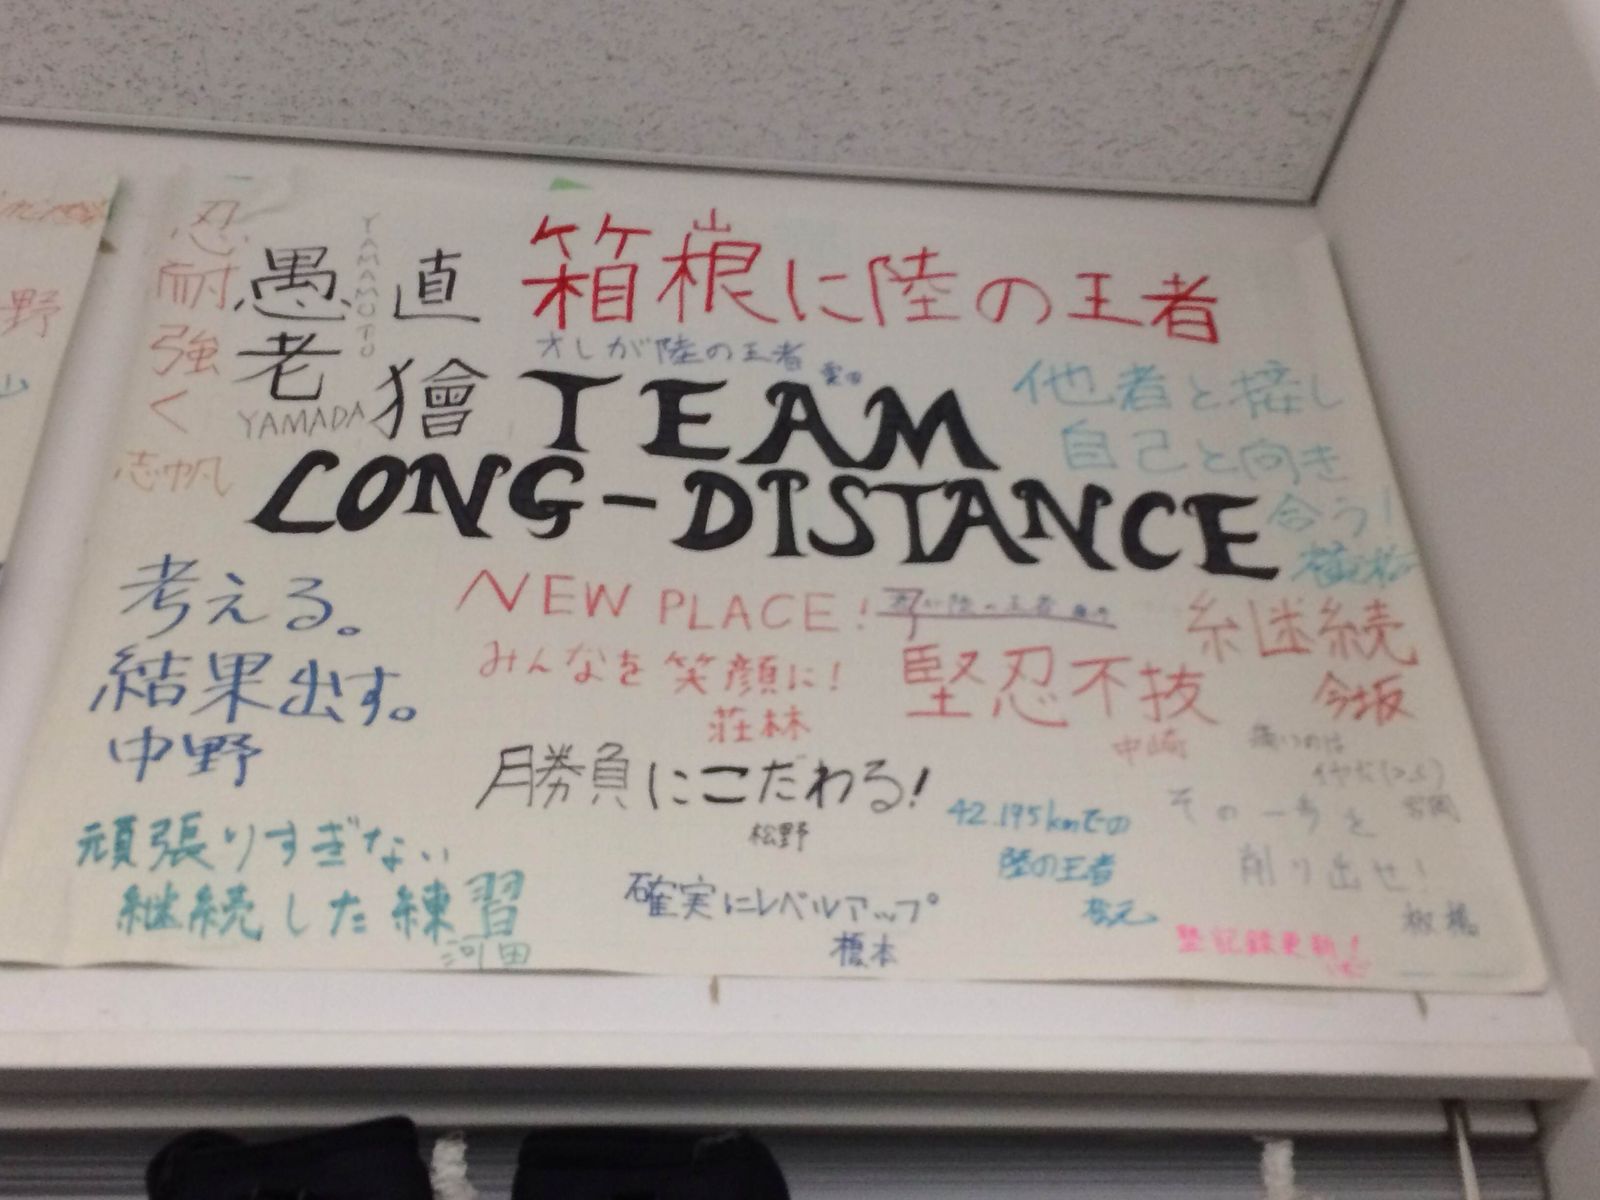 忍耐強く
志帆
愚直
YAMAMOTO
老獪
YAMADA
箱根に陸の王者
オレが陸の王者
TEAM
LONG-DISTANCE
他者と接し
自己と向き
合う!
考える。
結果出す。
中野
NEW PLACE!
みんなを笑顔に!
荘林
継続
今坂
堅忍不抜
中崎
勝負にこだわる!
松野
42.195kmでの
陸の王者
痛いのは
その一歩を
削り出せ!
板橋
頑張りすぎない
継続した練習
河田
確実にレベルアップ
榎本
塾記録更新!
野
山